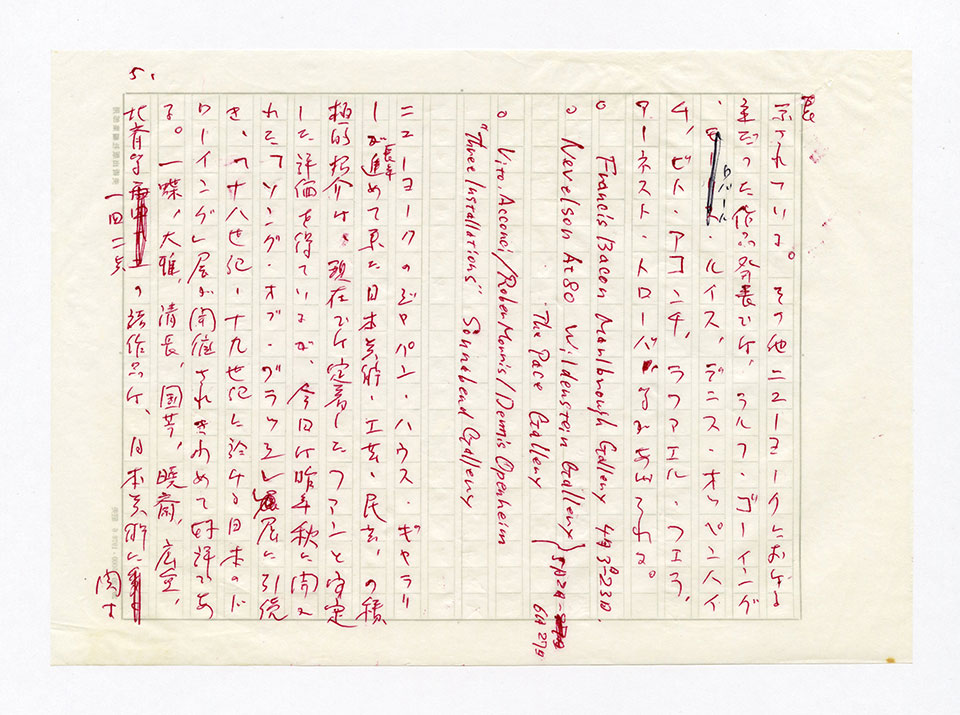 5.
示されている。その他ニューヨークにおける
主だった作品発表では、ラルフ・ゴーイング
ロバート・ルイス、デニス・オッペンハイ
マ、ビト・アコンチ、ラファエル・フェラ、
アーネスト・トローバ等があげられる。
○ Francis Bacon Marlbrough Gallery 4月3-23日.
○ Nevelson At 80 Wildenstein Gallery
The Pace Gallery
5月2日-
6月27日
○ Vito. Acconci/Robert Morris/Dennis Openheim
"Three Installations" Sonnabend Gallery
ニューヨークのジャパン・ハウス・ギャラリ
ーが長年進めて来た日本美術・工芸・民芸・の積
極的紹介は、現在では定着したファンと安定
した評価を得ているが、今日は昨年秋に開か
れたソング・オブ・ブラッシュ展に引続
き、「十八世紀-十九世紀に於ける日本のド
ローイング」展が開催されきわめて好評であ
る。一蝶、大雅、清長、国芳、暁斎、広重、
北斎等一四二点の諸作品は、日本美術に関す